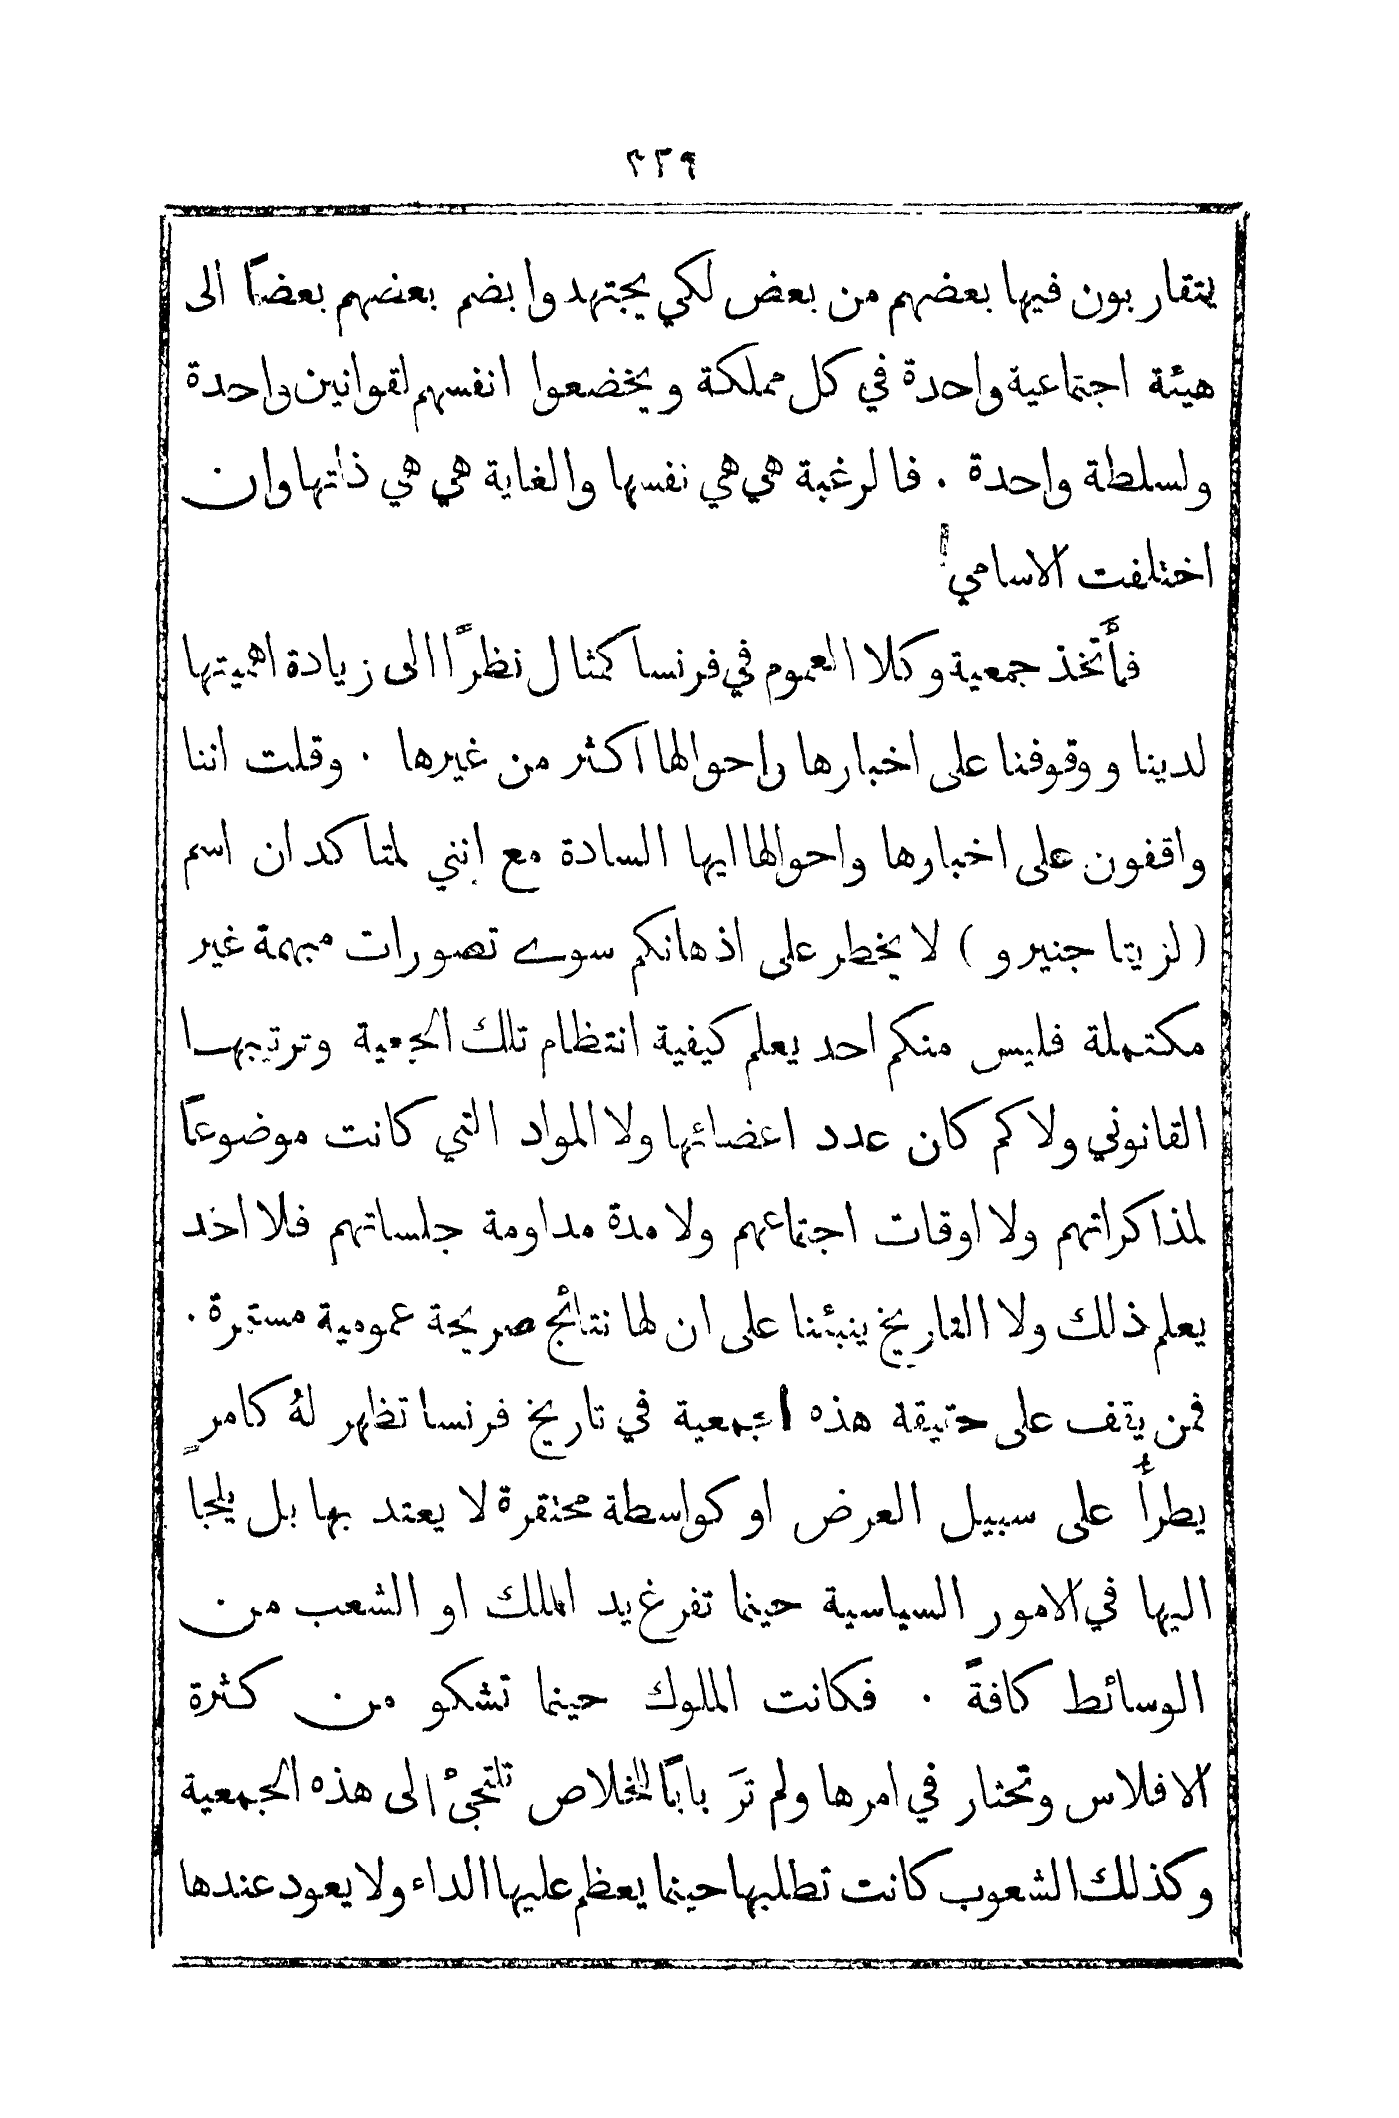 ٢٢٩
يتقاربون فيها بعضهم من بعض لكي يجتهدوا بضم بعضهم بعضاً الى
هيئة اجتماعية واحدة في كل مملكة ويخضعوا انفسهم لقوانين واحدة
ولسلطة واحدة . فالرغبة هي هي نفسها والغاية هي هي ذاتها وان
اختلفت الاسامي
فلنأخذ جمعية وكلا العموم في فرنسا كمثال نظرًا الى زيادة اهميتها
لدينا ووقوفنا على اخبارها واحوالها اكثر من غيرها . وقلت اننا
واقفون على اخبارها واحوالها ايها السادة مع انني لمتاكد ان اسم
( لزيتا جنيرو ) لا يخطر على اذهانكم سوى تصورات مبهمة غير
مكتملة فليس منكم احد يعلم كيفية انتظام تلك الجمعية وترتيبها
القانوني ولا كم كان عدد اعضائها ولا المواد التي كانت موضوعاً
لمذاكراتهم ولا اوقات اجتماعهم ولا مدة مداومة جلساتهم فلا احد
يعلم ذلك ولا التاريخ ينبئنا على ان لها نتائج صريحة عمومية مستمرة .
فمن يقف على حقيقة هذه الجمعية في تاريخ فرنسا تظهر لهُ كامرٍ
يطرأ على سبيل العرض او كواسطة محتقرة لا يعتد بها بل يلجا
اليها في الامور السياسية حينما تفرغ يد الملك او الشعب من
الوسائط كافةً . فكانت الملوك حينما تشكو من كثرة
الافلاس وتحتار في امرها ولم ترَ باباً للخلاص تلتجئ الى هذه الجمعية
وكذلك الشعوب كانت تطلبها حينما يعظم عليها الداء ولا يعود عندها